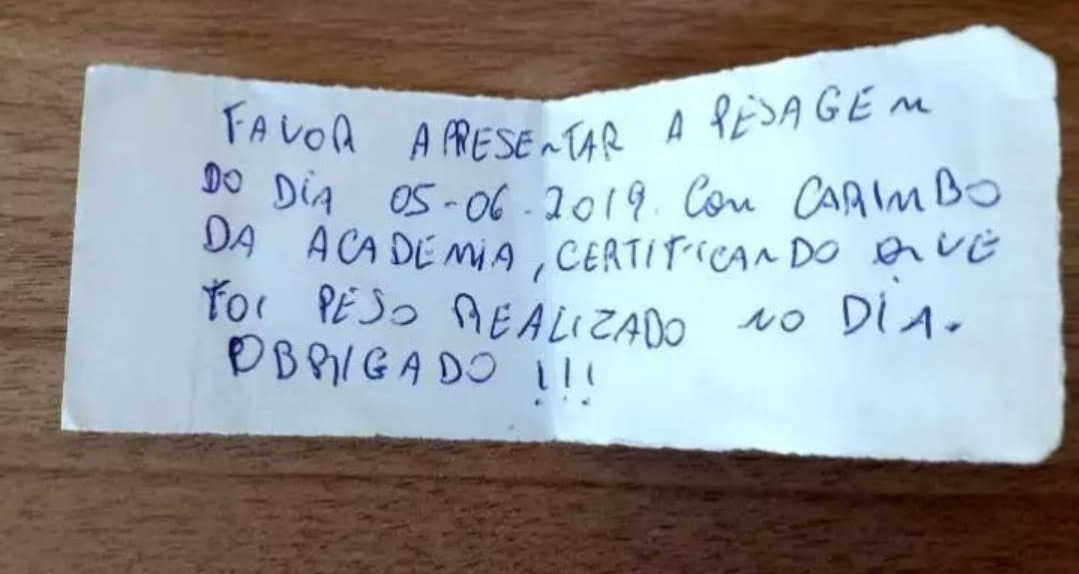 FAVOR APRESENTAR A PESAGEM
DO DIA 05-06-2019. Com CARIMBO
DA ACADEMIA, CERTIFICANDO QUE
FOI PESO REALIZADO NO DIA.
OBRIGADO !!!